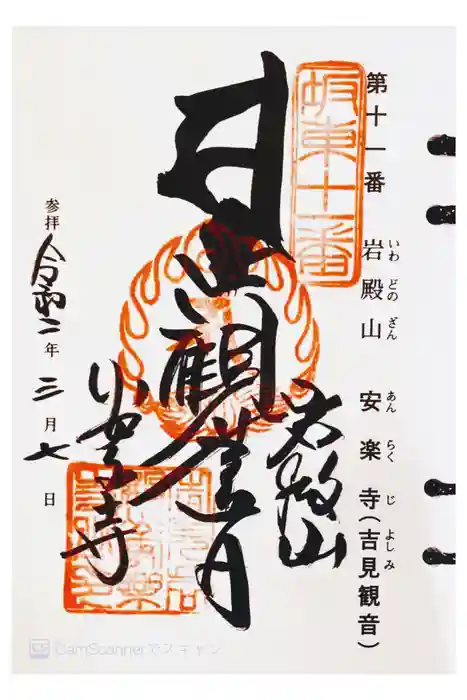 第十一番 岩殿山 安楽寺(吉見観音)
いわ どの ざん あん らく じ よし み
坂東十一番
岩殿山
安楽寺
参拝 令和二年 三月七日
CS CamScannerでスキャン